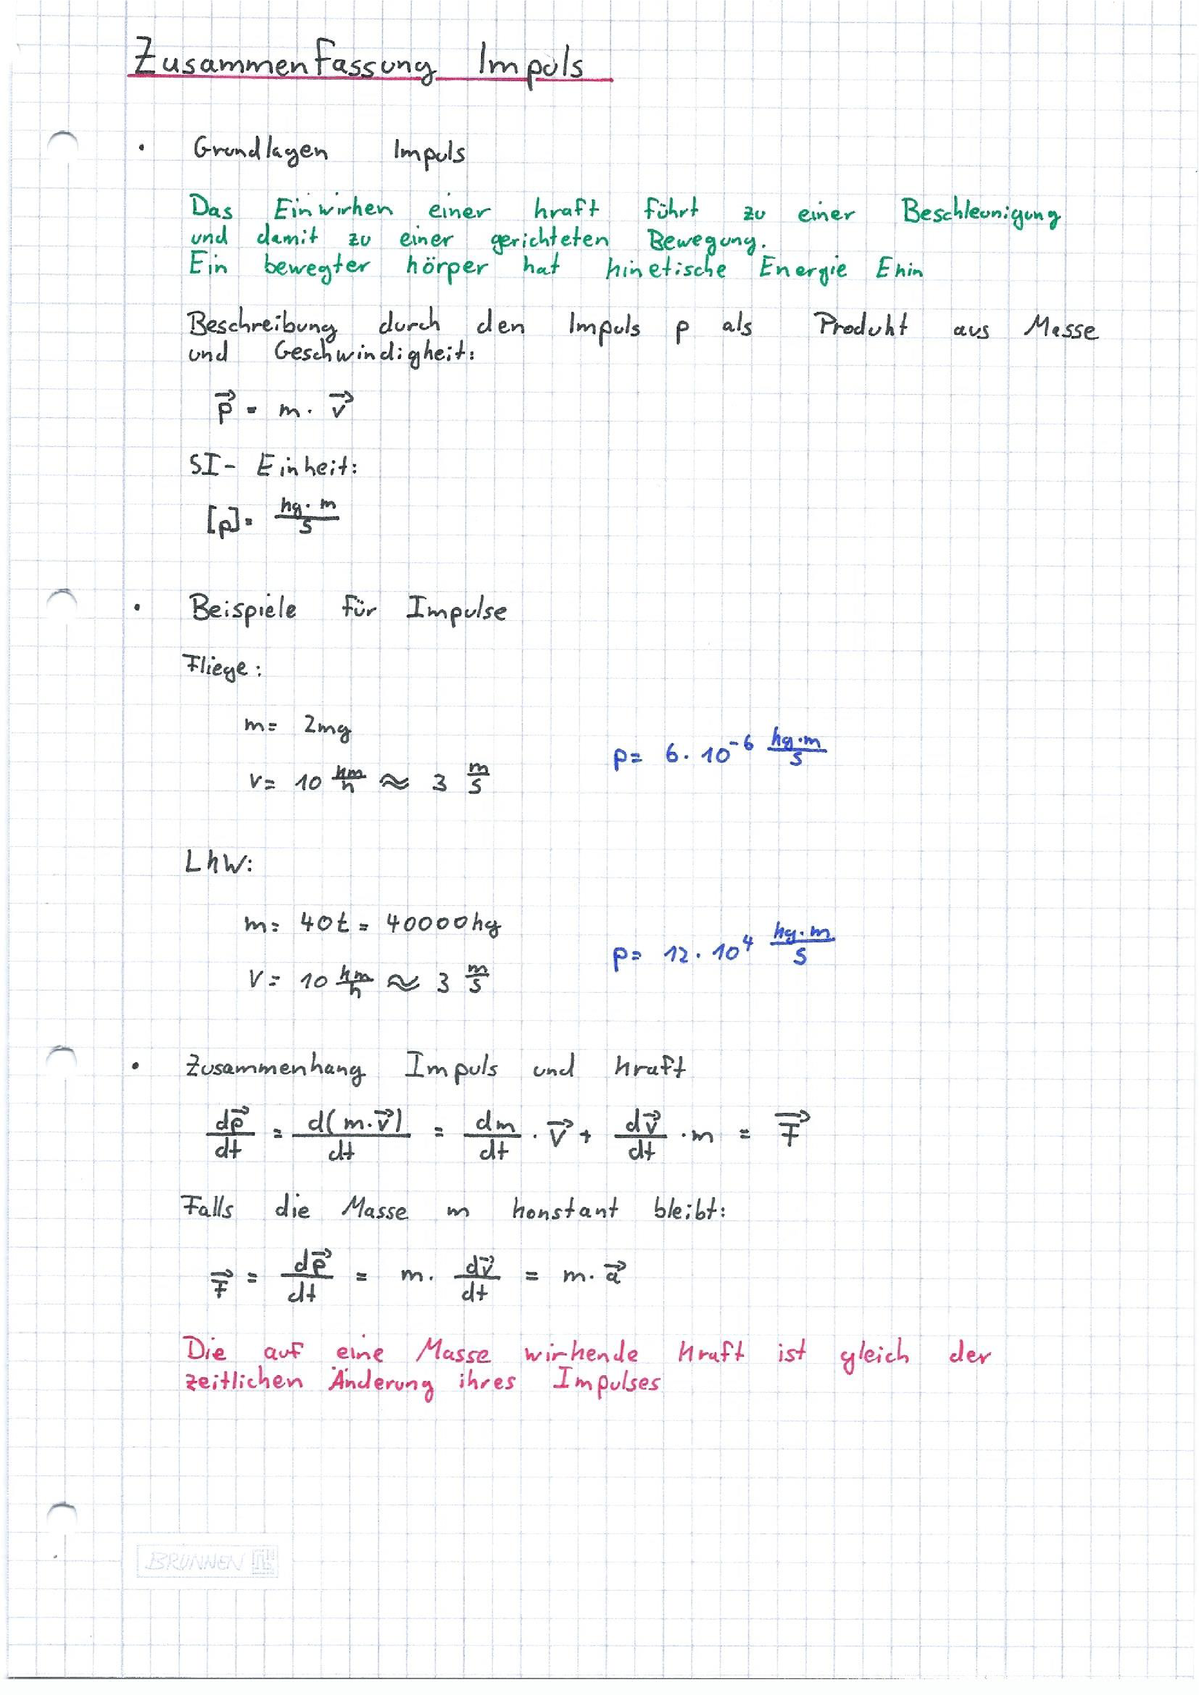 Zusammenfassung Impuls
• Grundlagen Impuls
Das Einwirken einer Kraft führt zu einer Beschleunigung
und damit zu einer gerichteten Bewegung.
Ein bewegter Körper hat kinetische Energie Ekin
Beschreibung durch den Impuls p als Produkt aus Masse
und Geschwindigkeit:
p⃗ = m · v⃗
SI- Einheit:
[p] = kg · m / s
• Beispiele für Impulse
Fliege:
m = 2mg
v = 10 km/h ≈ 3 m/s
p = 6 · 10⁻⁶ kg·m/s
LKW:
m = 40t = 40000kg
v = 10 km/h ≈ 3 m/s
p = 12 · 10⁴ kg·m/s
• Zusammenhang Impuls und Kraft
dp⃗/dt = d(m·v⃗)/dt = dm/dt · v⃗ + dv⃗/dt · m = F⃗
Falls die Masse m konstant bleibt:
F⃗ = dp⃗/dt = m · dv⃗/dt = m · a⃗
Die auf eine Masse wirkende Kraft ist gleich der
zeitlichen Änderung ihres Impulses
BRUNNEN